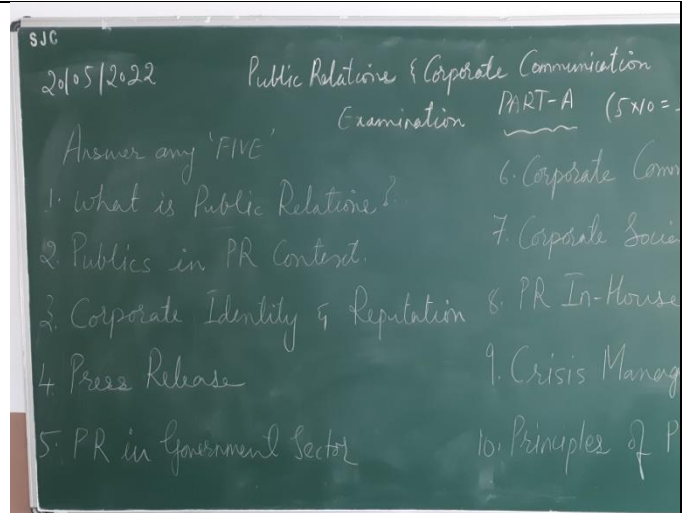 SJC
20/05/2022
Public Relations & Corporate Communication
Examination PART-A (5x10=
Answer any 'FIVE'
1. What is Public Relations?
2. Publics in PR Context.
3. Corporate Identity & Reputation
4. Press Release
5. PR in Government Sector
6. Corporate
7. Corporate
8. PR In-House
9. Crisis
10. Principles of